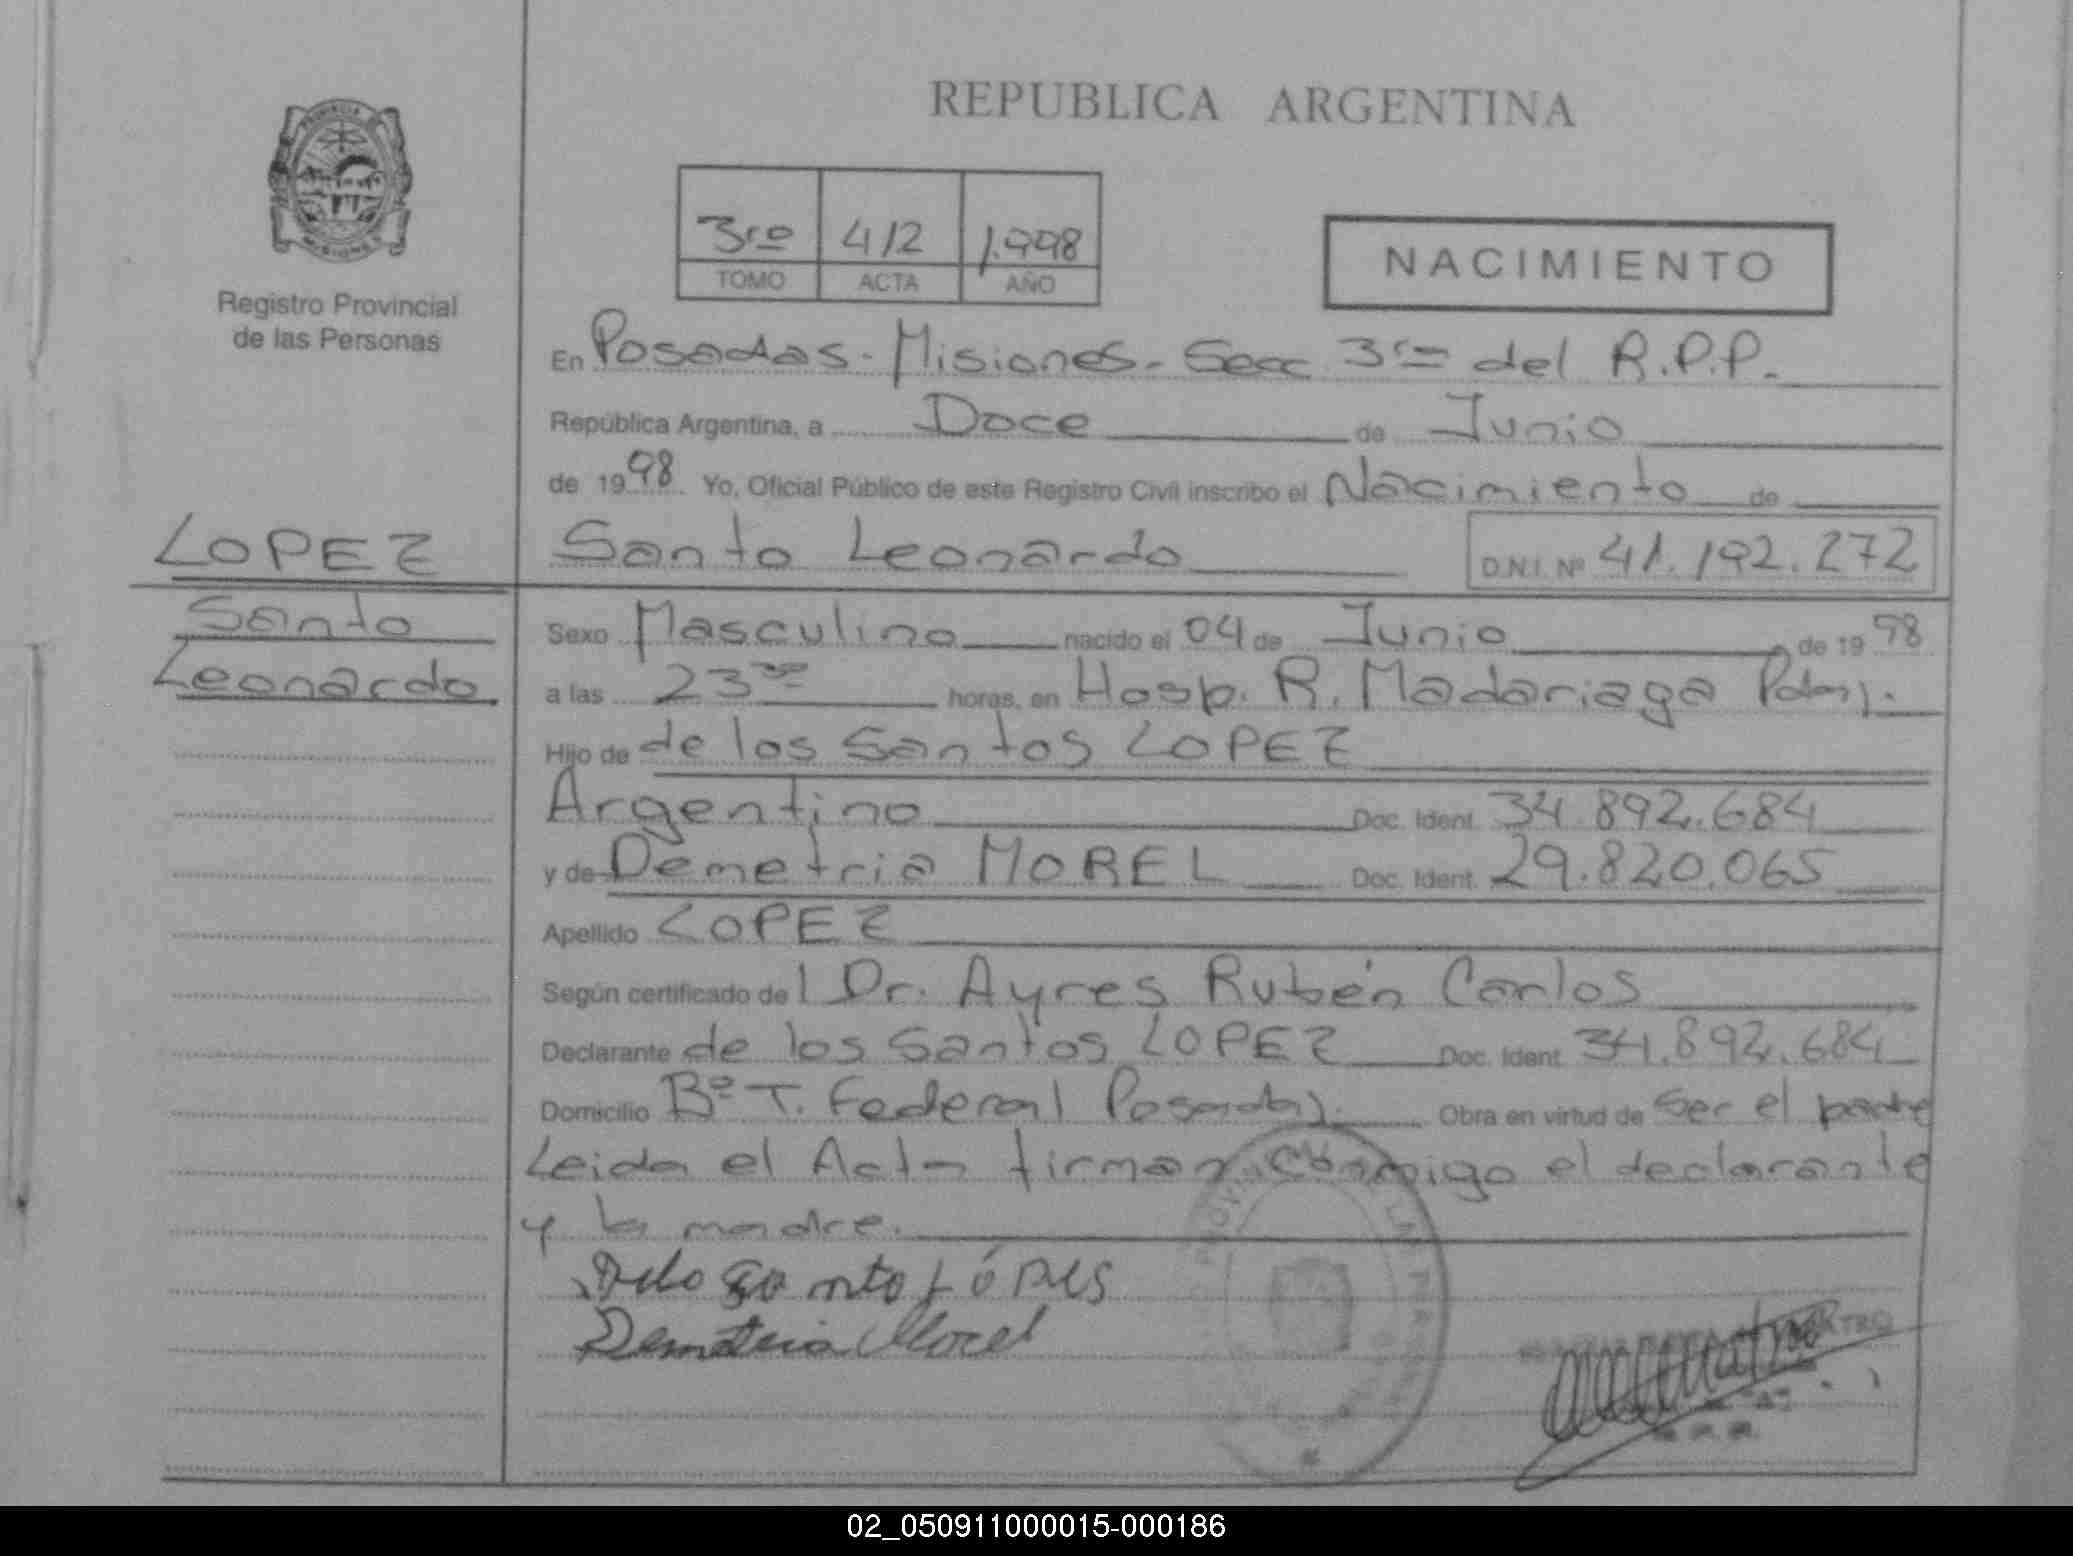 REPUBLICA ARGENTINA
PROVINCIA DE
MISIONES
Registro Provincial
de las Personas
3ro 412 1.998
TOMO ACTA AÑO
NACIMIENTO
En Posadas - Misiones - Secc 3ra del R.P.P.
República Argentina, a Doce de Junio
de 1998 Yo, Oficial Público de este Registro Civil inscribo el Nacimiento de
LOPEZ
Santo Leonardo D.N.I. Nº 41.192.272
Santo
Leonardo
Sexo Masculino nacido el 04 de Junio de 1998
a las 23 horas, en Hosp. R. Madariaga Pdas).
Hijo de de los Santos LOPEZ
Argentino Doc. Ident. 34.892.684
y de Demetria MOREL Doc. Ident. 29.820.065
Apellido LOPEZ
Según certificado del Dr. Ayres Rubén Carlos
Declarante de los Santos LOPEZ Doc. Ident. 34.892.684
Domicilio Bº T. Federal Posadas). Obra en virtud de Ser el padre
Leida el Acta firman conmigo el declarante
y la madre.
Delo Santo Lópes
Demetria Morel
02_050911000015-000186